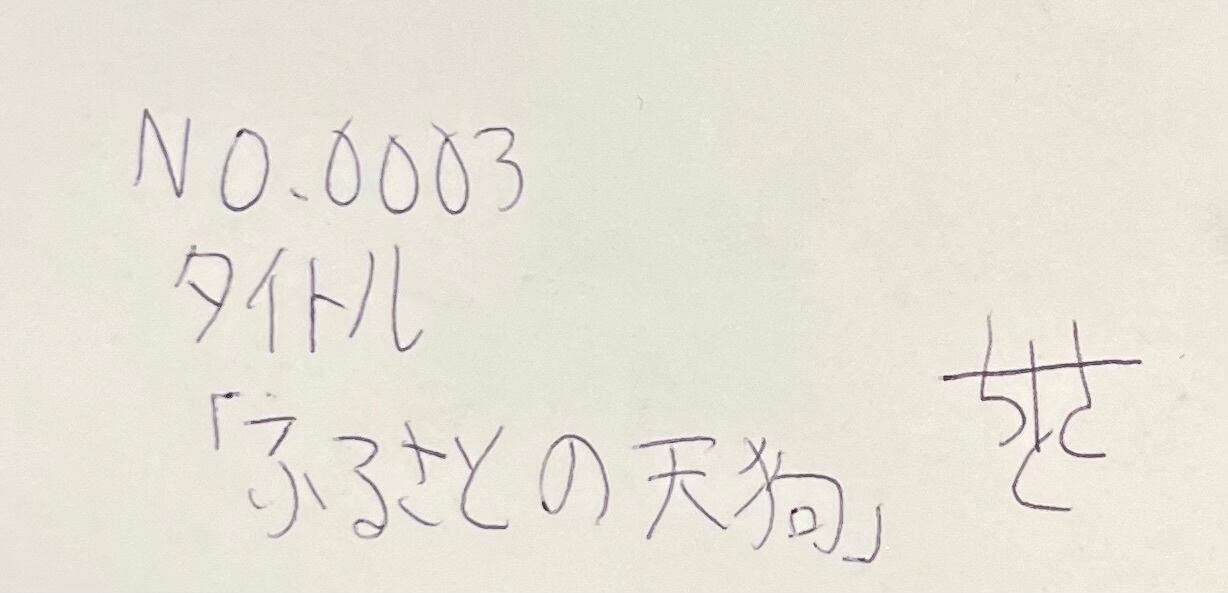 NO.0003
タイトル
「ふるさとの天狗」